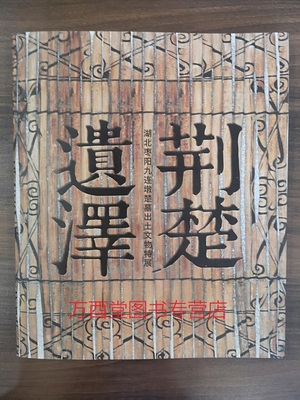 荆楚
遺澤
湖北枣阳九连墩楚墓出土文物特展
万酉堂图书专营店